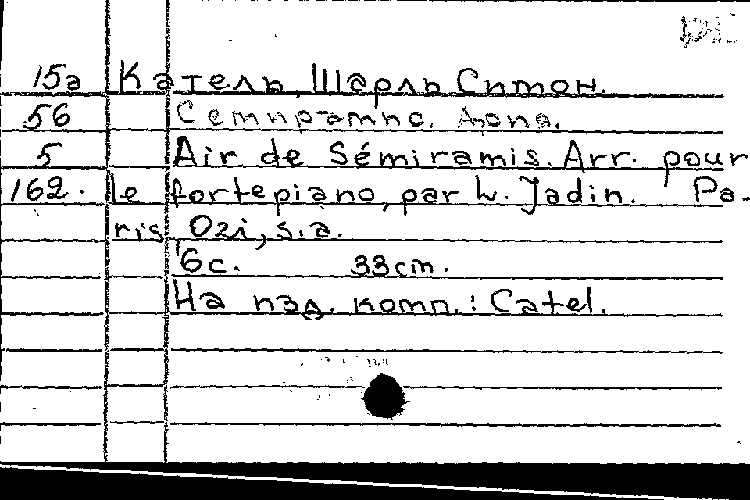 15а Катель, Шарль Симон.
56 Семирамис. Ария.
5 Air de Sémiramis. Arr. pour
162. le fortepiano, par L. Jadin. Pa-
ris, Ozi, s.a.
6с. 33cm.
На изд. комп.: Catel.